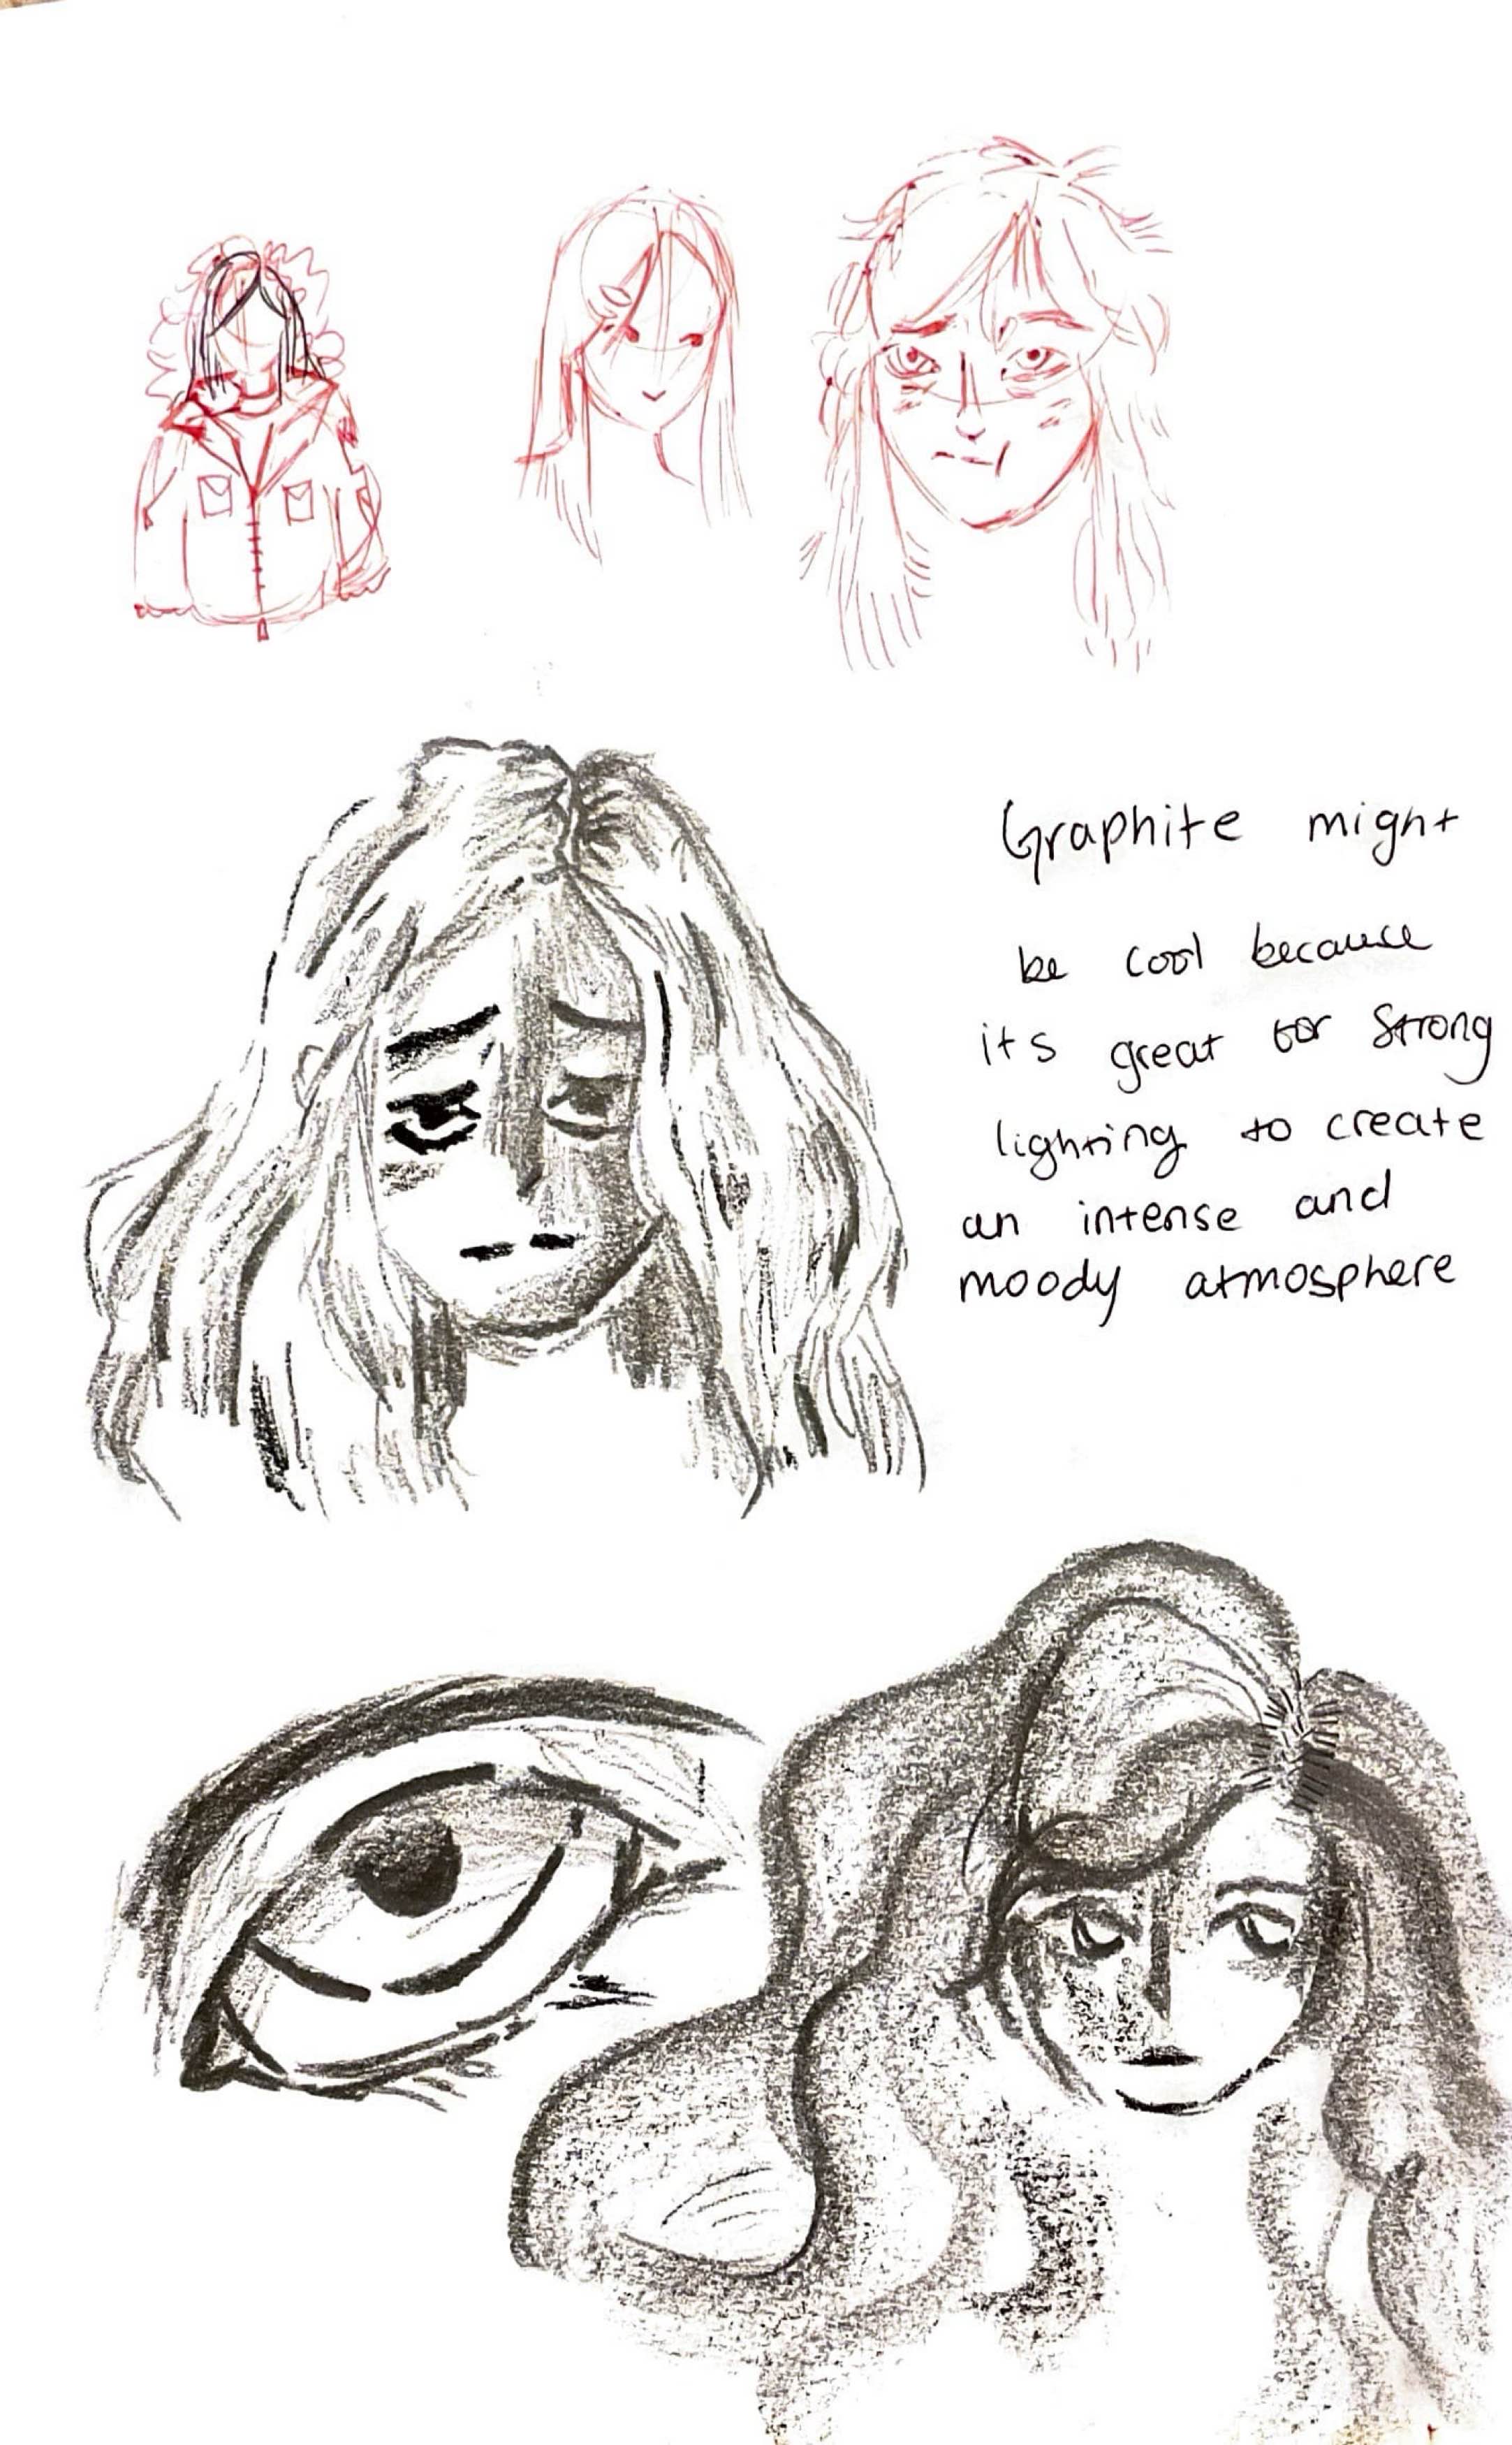 Graphite might
be cool because
its great for strong
lighting to create
an intense and
moody atmosphere